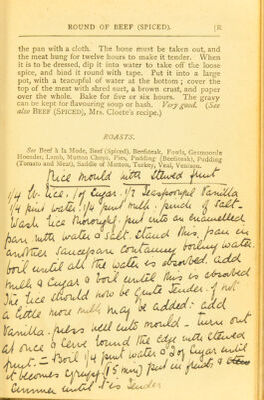 ROUND OF BEEF (SPICED). [R
the pan with a cloth. The bone must be taken out, and
the meat hung for twelve hours to make it tender. When
it is to be dressed, dip it into water to take off the loose
spice, and bind it round with tape. Put it into a large
pot, with a teacupful of water at the bottom; cover the
top of the meat with shred suet, a brown crust, and paper
over the whole. Bake for five or six hours. The gravy
can be kept for flavouring soup or hash. Very good. (See
also BEEF (SPICED), Mrs. Cloete's recipe.)
ROASTS.
See Beef à la Mode, Beef (Spiced), Beefsteak, Fowls, Gesmoorde
Hoender, Lamb, Mutton Chops, Pies, Pudding (Beefsteak), Pudding
(Tomato and Meat), Saddle of Mutton, Turkey, Veal, Venison.
Rice mould with stewed fruit
1/4 lb. rice. 1 oz sugar. 1/2 teaspoonful Vanilla
1/4 pint water. 1/4 pint milk. pinch of salt.
Wash rice thoroughly. put into an enamelled
pan with water & salt. stand this pan in
another saucepan containing boiling water.
boil until all the water is absorbed. add
milk & sugar & boil until this is absorbed
The rice should now be quite tender. if not
a little more milk may be added: add
Vanilla. press well into mould – turn out
at once & serve round the edge with stewed
fruit. = Boil 1/4 pint water & 3 oz sugar until
it becomes syrupy (15 mins) put in fruit, &
simmer until it is tender